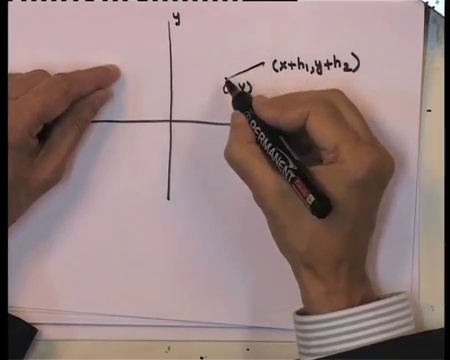 y
(x+h₁, y+h₂)
y)
PERMANENT